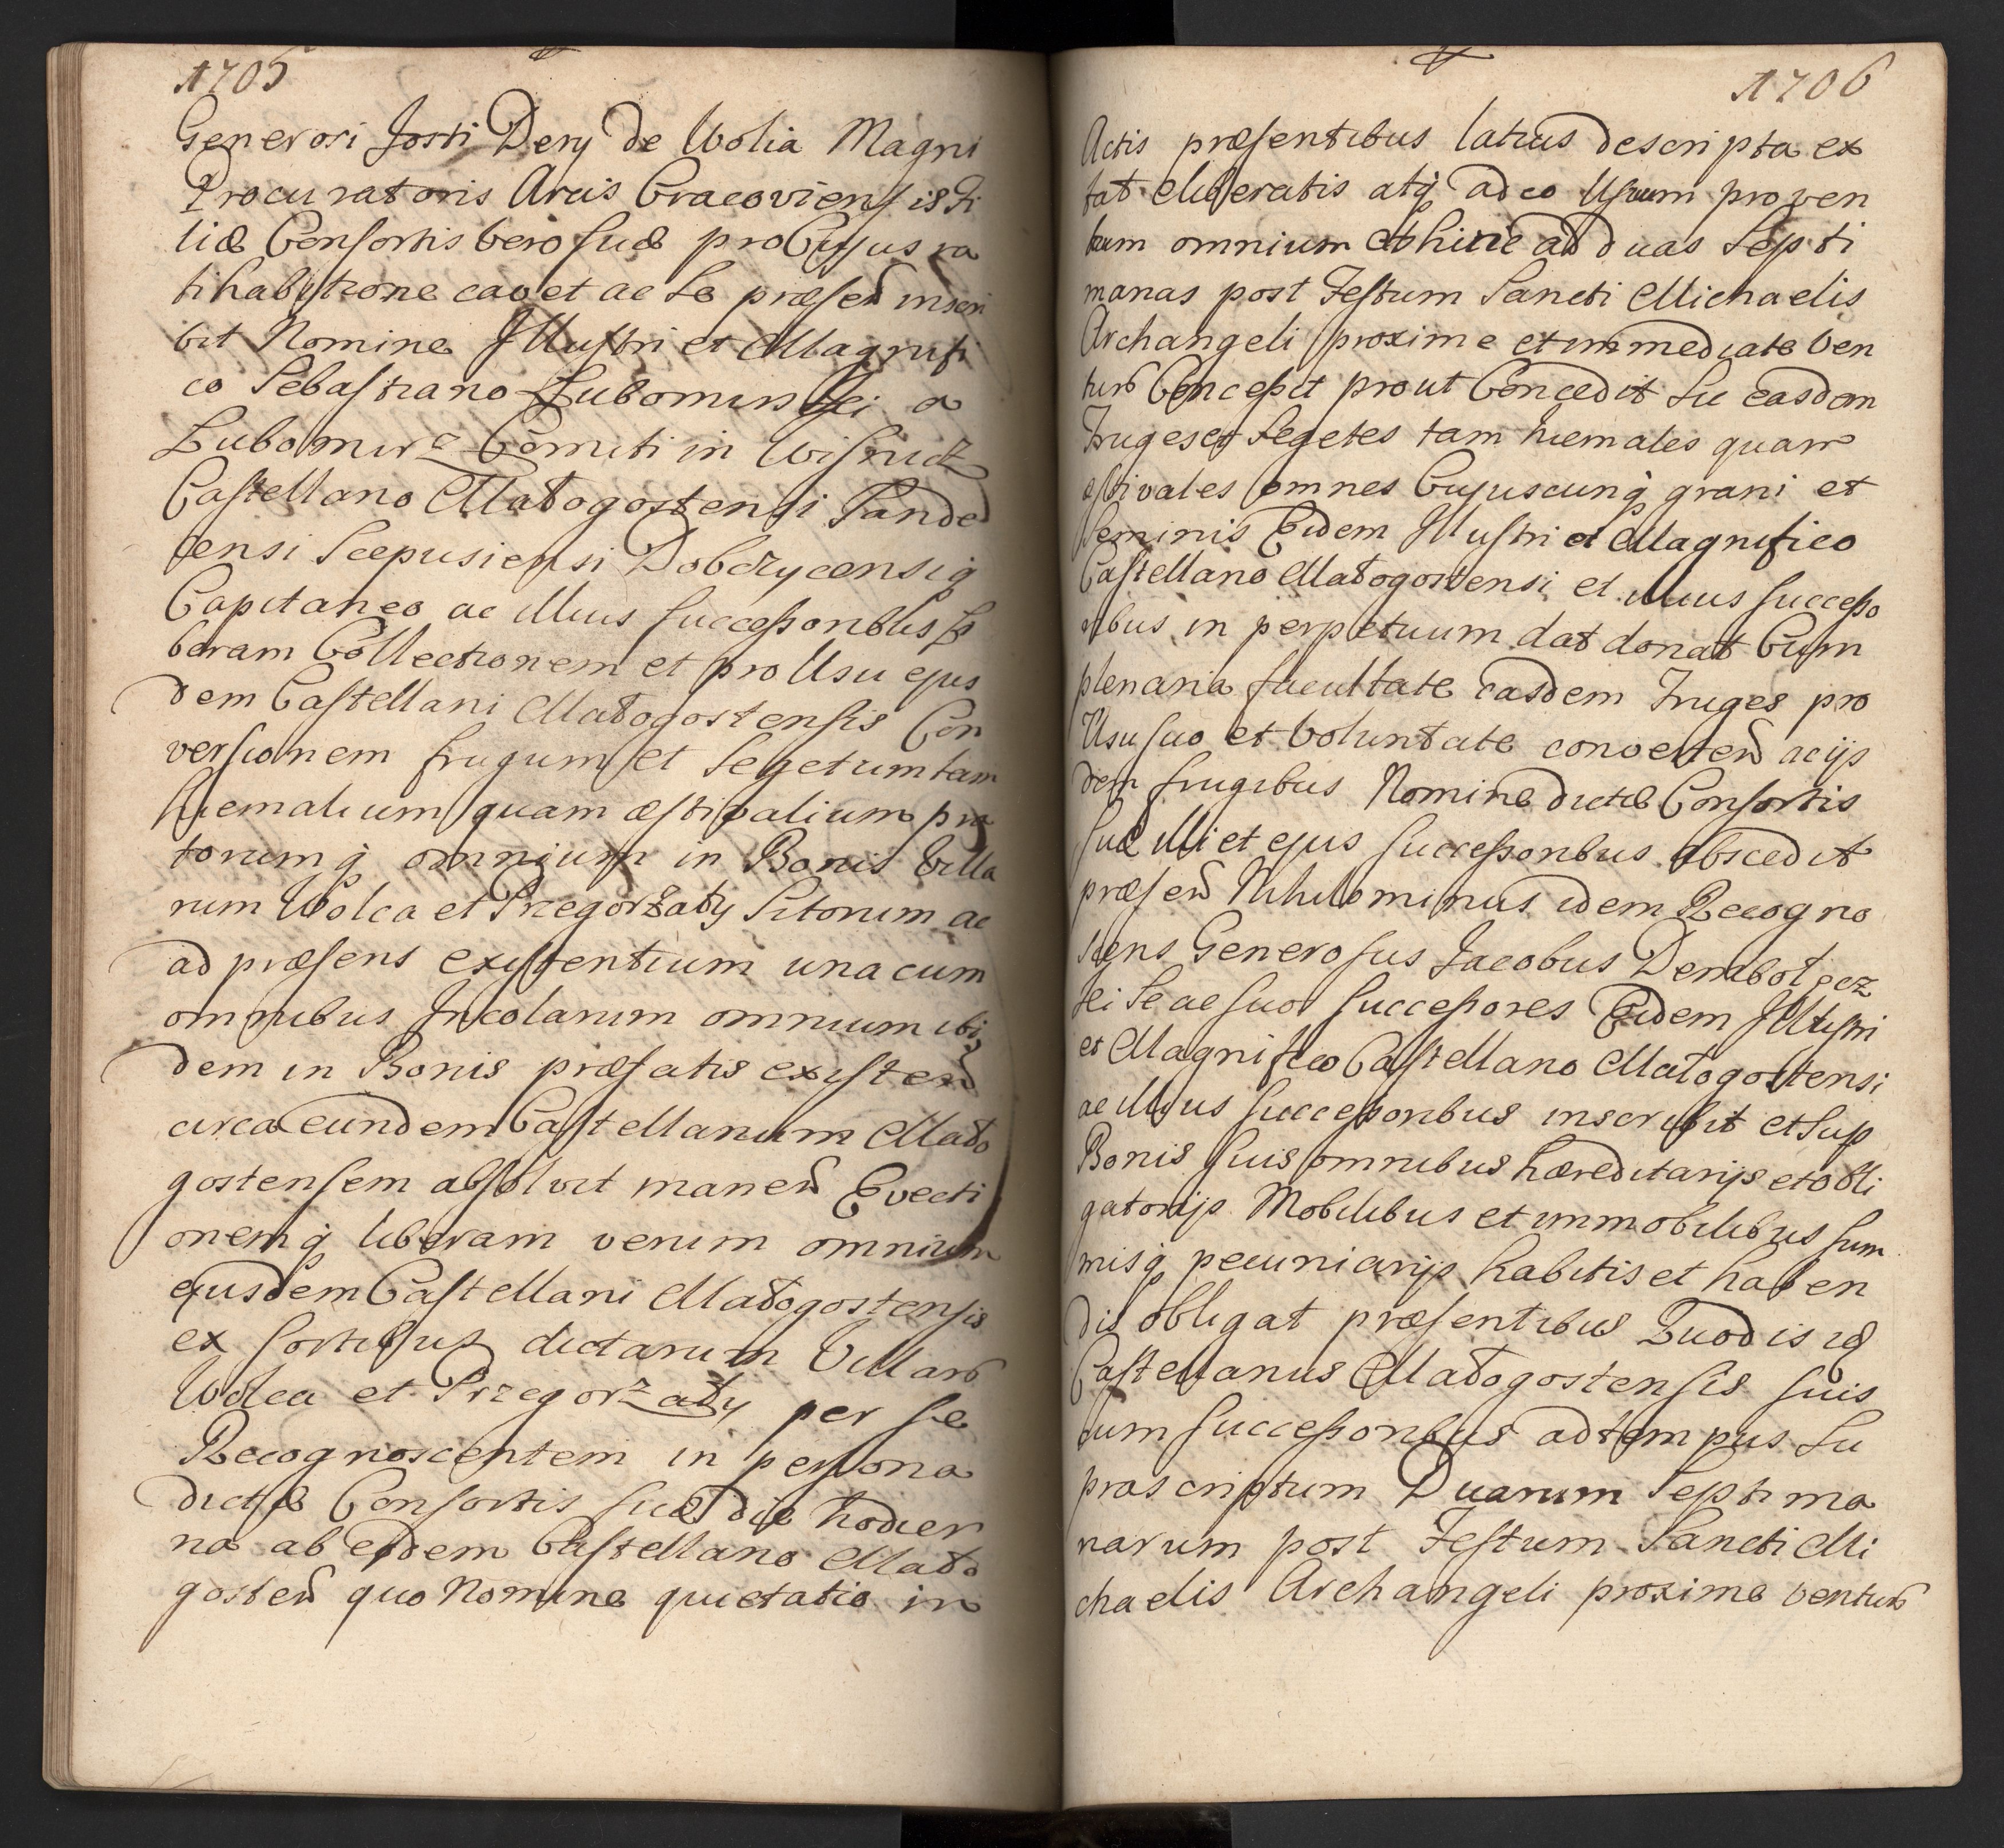 1705
Generosi Josti Dery de Wolia Magni
Procuratoris Arcis Cracoviensis Fi
liæ Consortis vero suæ pro Cujus ra
tihabitione cavet ac Se præsen inscri
bit Nomine Illustri et Magnifi
co Sebastiano Lubomirski a
Lubomirz Comiti in Wisnicz
Castellano Małogostensi Sande
censi Scepusiensi Dobczycensiq
Capitaneo ac illius Successoribus
beram Collectionem et pro Usu ejus
dem Castellani Małogostensis Con
versionem frugum et Segetum tam
hiemalium quam æstivalium pra
torumq omnium in Bonis Villa
rum Wolca et Przegorzały Sitorum ac
ad præsens existentium una cum
omnibus Incolarum omnium ibi
dem in Bonis præfatis existen
circa eundem Castellanum Mało
gostensem absolvit manen Evecti
onemq liberam verum omnium
ejusdem Castellani Małogostensis
ex sortibus dictarum Villar
Wolca et Przegorzały per se
Recognoscentem in persona
dictæ Consortis suæ die hodier
na ab eodem Castellano Mało
gosten quo Nomine quietatio in
1706
Actis præsentibus latius descripta ex
tat eliberatis atq adeo Usum proven
tum omnium abhinc ad duas Septi
manas post Festum Sancti Michaelis
Archangeli proxime et immediate ven
tur Concessit prout Concedit Su easdem
Fruges et Segetes tam hiemales quam
æstivales omnes Cujuscunq grani et
Seminis Eidem Illustri et Magnifico
Castellano Małogostensi et illius Successo
ribus in perpetuum dat donat Cum
plenaria facultate easdem Fruges pro
Usu suo et Voluntate converten ac ijs
dem frugibus Nomine dictæ Consortis
suæ illi et ejus Successoribus abscedit
præsen Nihilominus idem Recogno
scens Generosus Jacobus Dembołęcz
ki Se ac suos Successores Eidem Illustri
et Magnifico Castellano Małogostensi
ac illius Successoribus inscribit et Sup
Bonis suis omnibus hæreditarijs et obli
gatorijs Mobilibus et immobilibus Sum
misq pecuniarijs habitis et haben
dis obligat præsentibus Quod is id
Castellanus Małogostensis suis
cum Successoribus ad tempus Su
prascriptum Duarum Septima
narum post Festum Sancti Mi
chaelis Archangeli proxime ventur